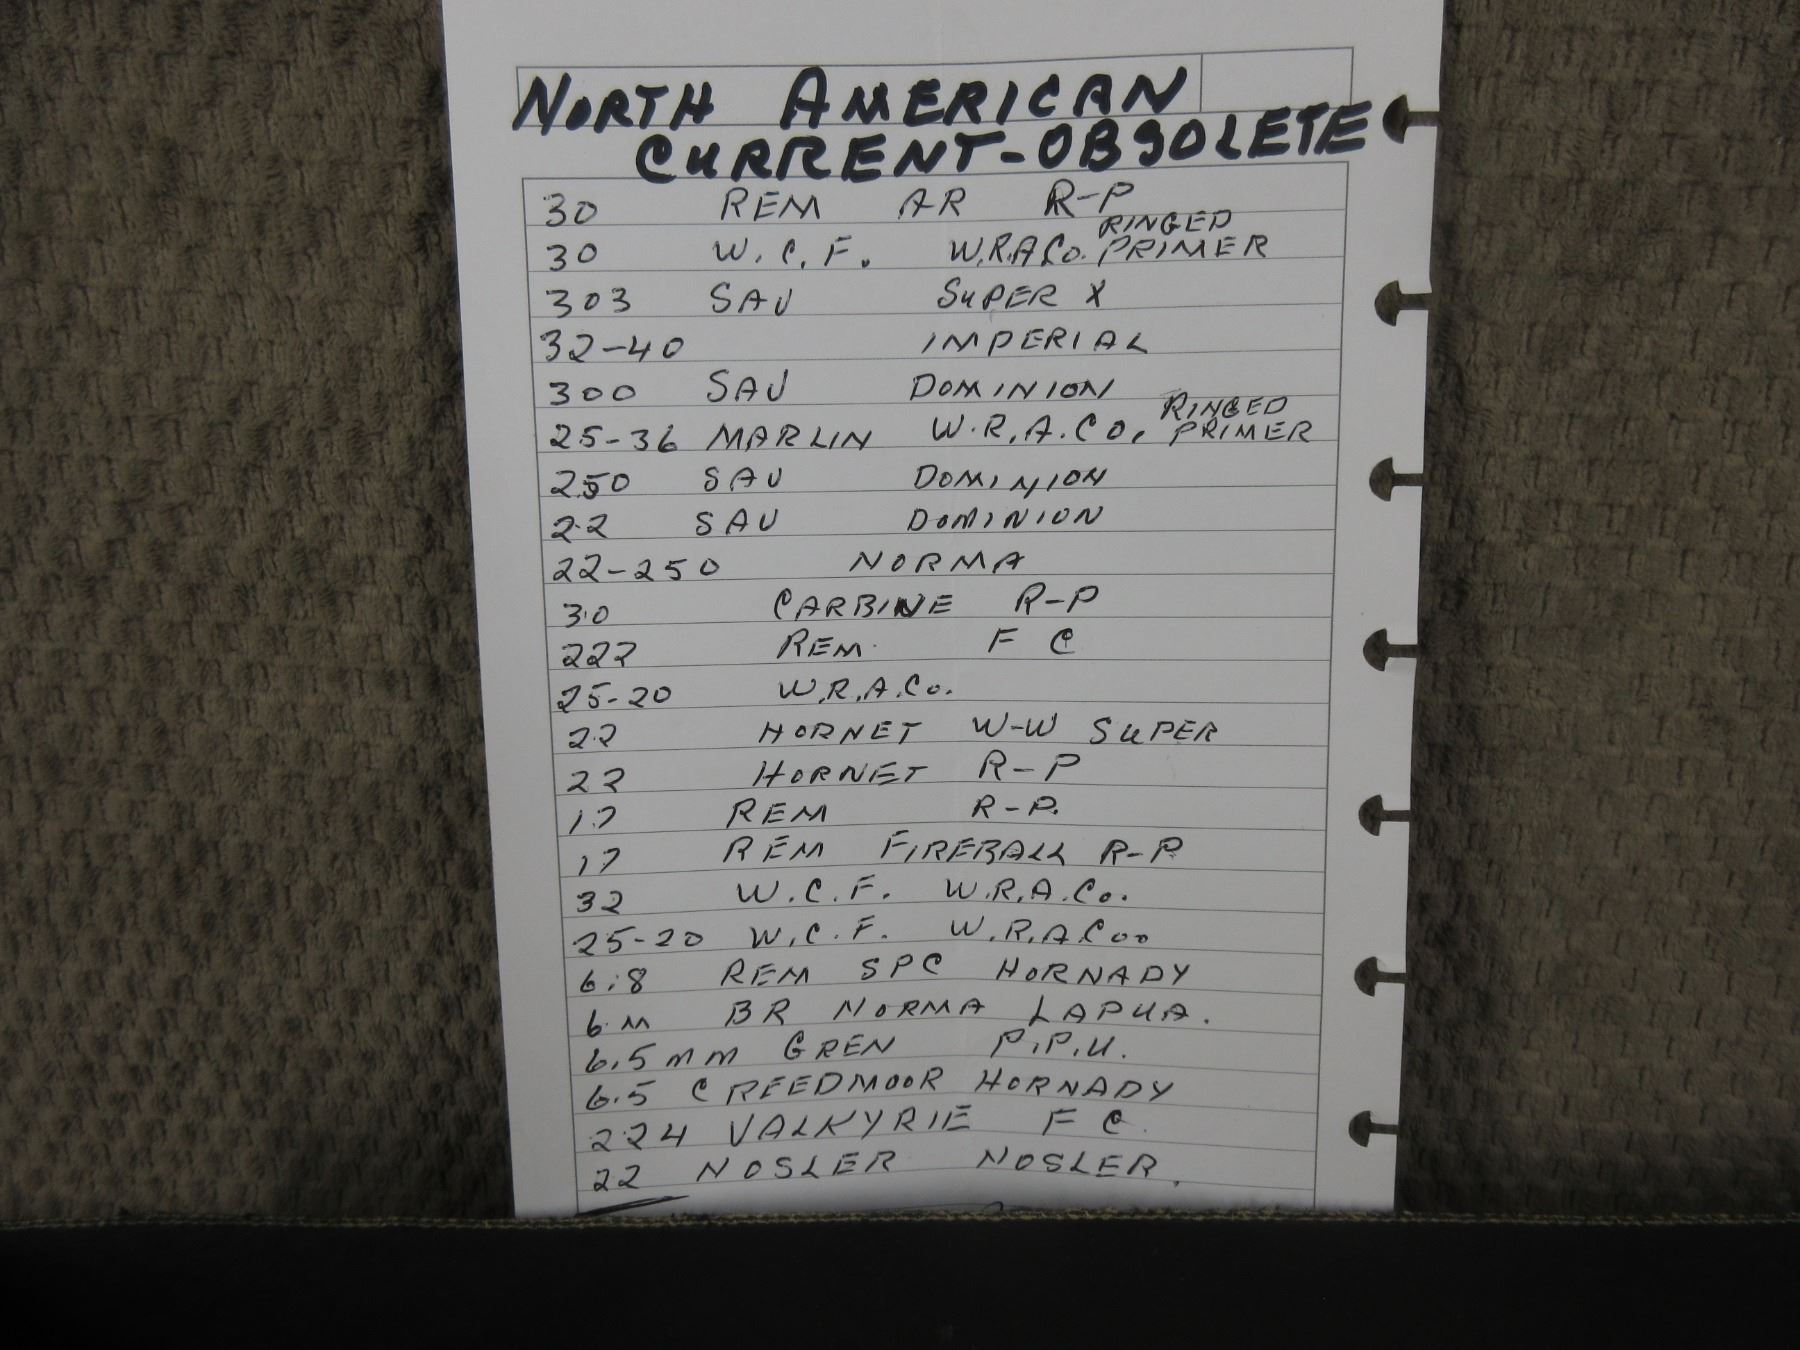 NORTH AMERICAN
CURRENT-OBSOLETE
30 REM AR R-P
30 W.C.F. W.R.A.Co. RINGED PRIMER
303 SAV SUPER X
32-40 IMPERIAL
300 SAV DOMINION
25-36 MARLIN W.R.A.CO. RINGED PRIMER
250 SAV DOMINION
22 SAV DOMINION
22-250 NORMA
30 CARBINE R-P
222 REM. F C
25-20 W.R.A.Co.
22 HORNET W-W SUPER
22 HORNET R-P
17 REM R-P.
17 REM FIREBALL R-P
32 W.C.F. W.R.A.Co.
25-20 W.C.F. W.R.A.Co.
6.8 REM SPC HORNADY
6 M BR NORMA LAPUA.
6.5mm GREN P.P.U.
6.5 CREEDMOOR HORNADY
224 VALKYRIE F C.
22 NOSLER NOSLER.